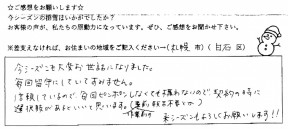 ☆ご感想をお願いします☆
今シーズンの排雪はいかがでしたか？
お客様の声が、私たちの原動力になっています。ぜひ、ご感想をお聞かせ下さい。
※差支えなければ、お住まいの地域をご記入ください→(札幌 市) (白石 区)
今シーズンも大変お世話になりました。
毎回留守にしていてすみません。
信頼しているので、毎回ピンポンしなくても構わないので契約の時に
選択肢があるといいと思います。
来シーズンもよろしくお願いします!!